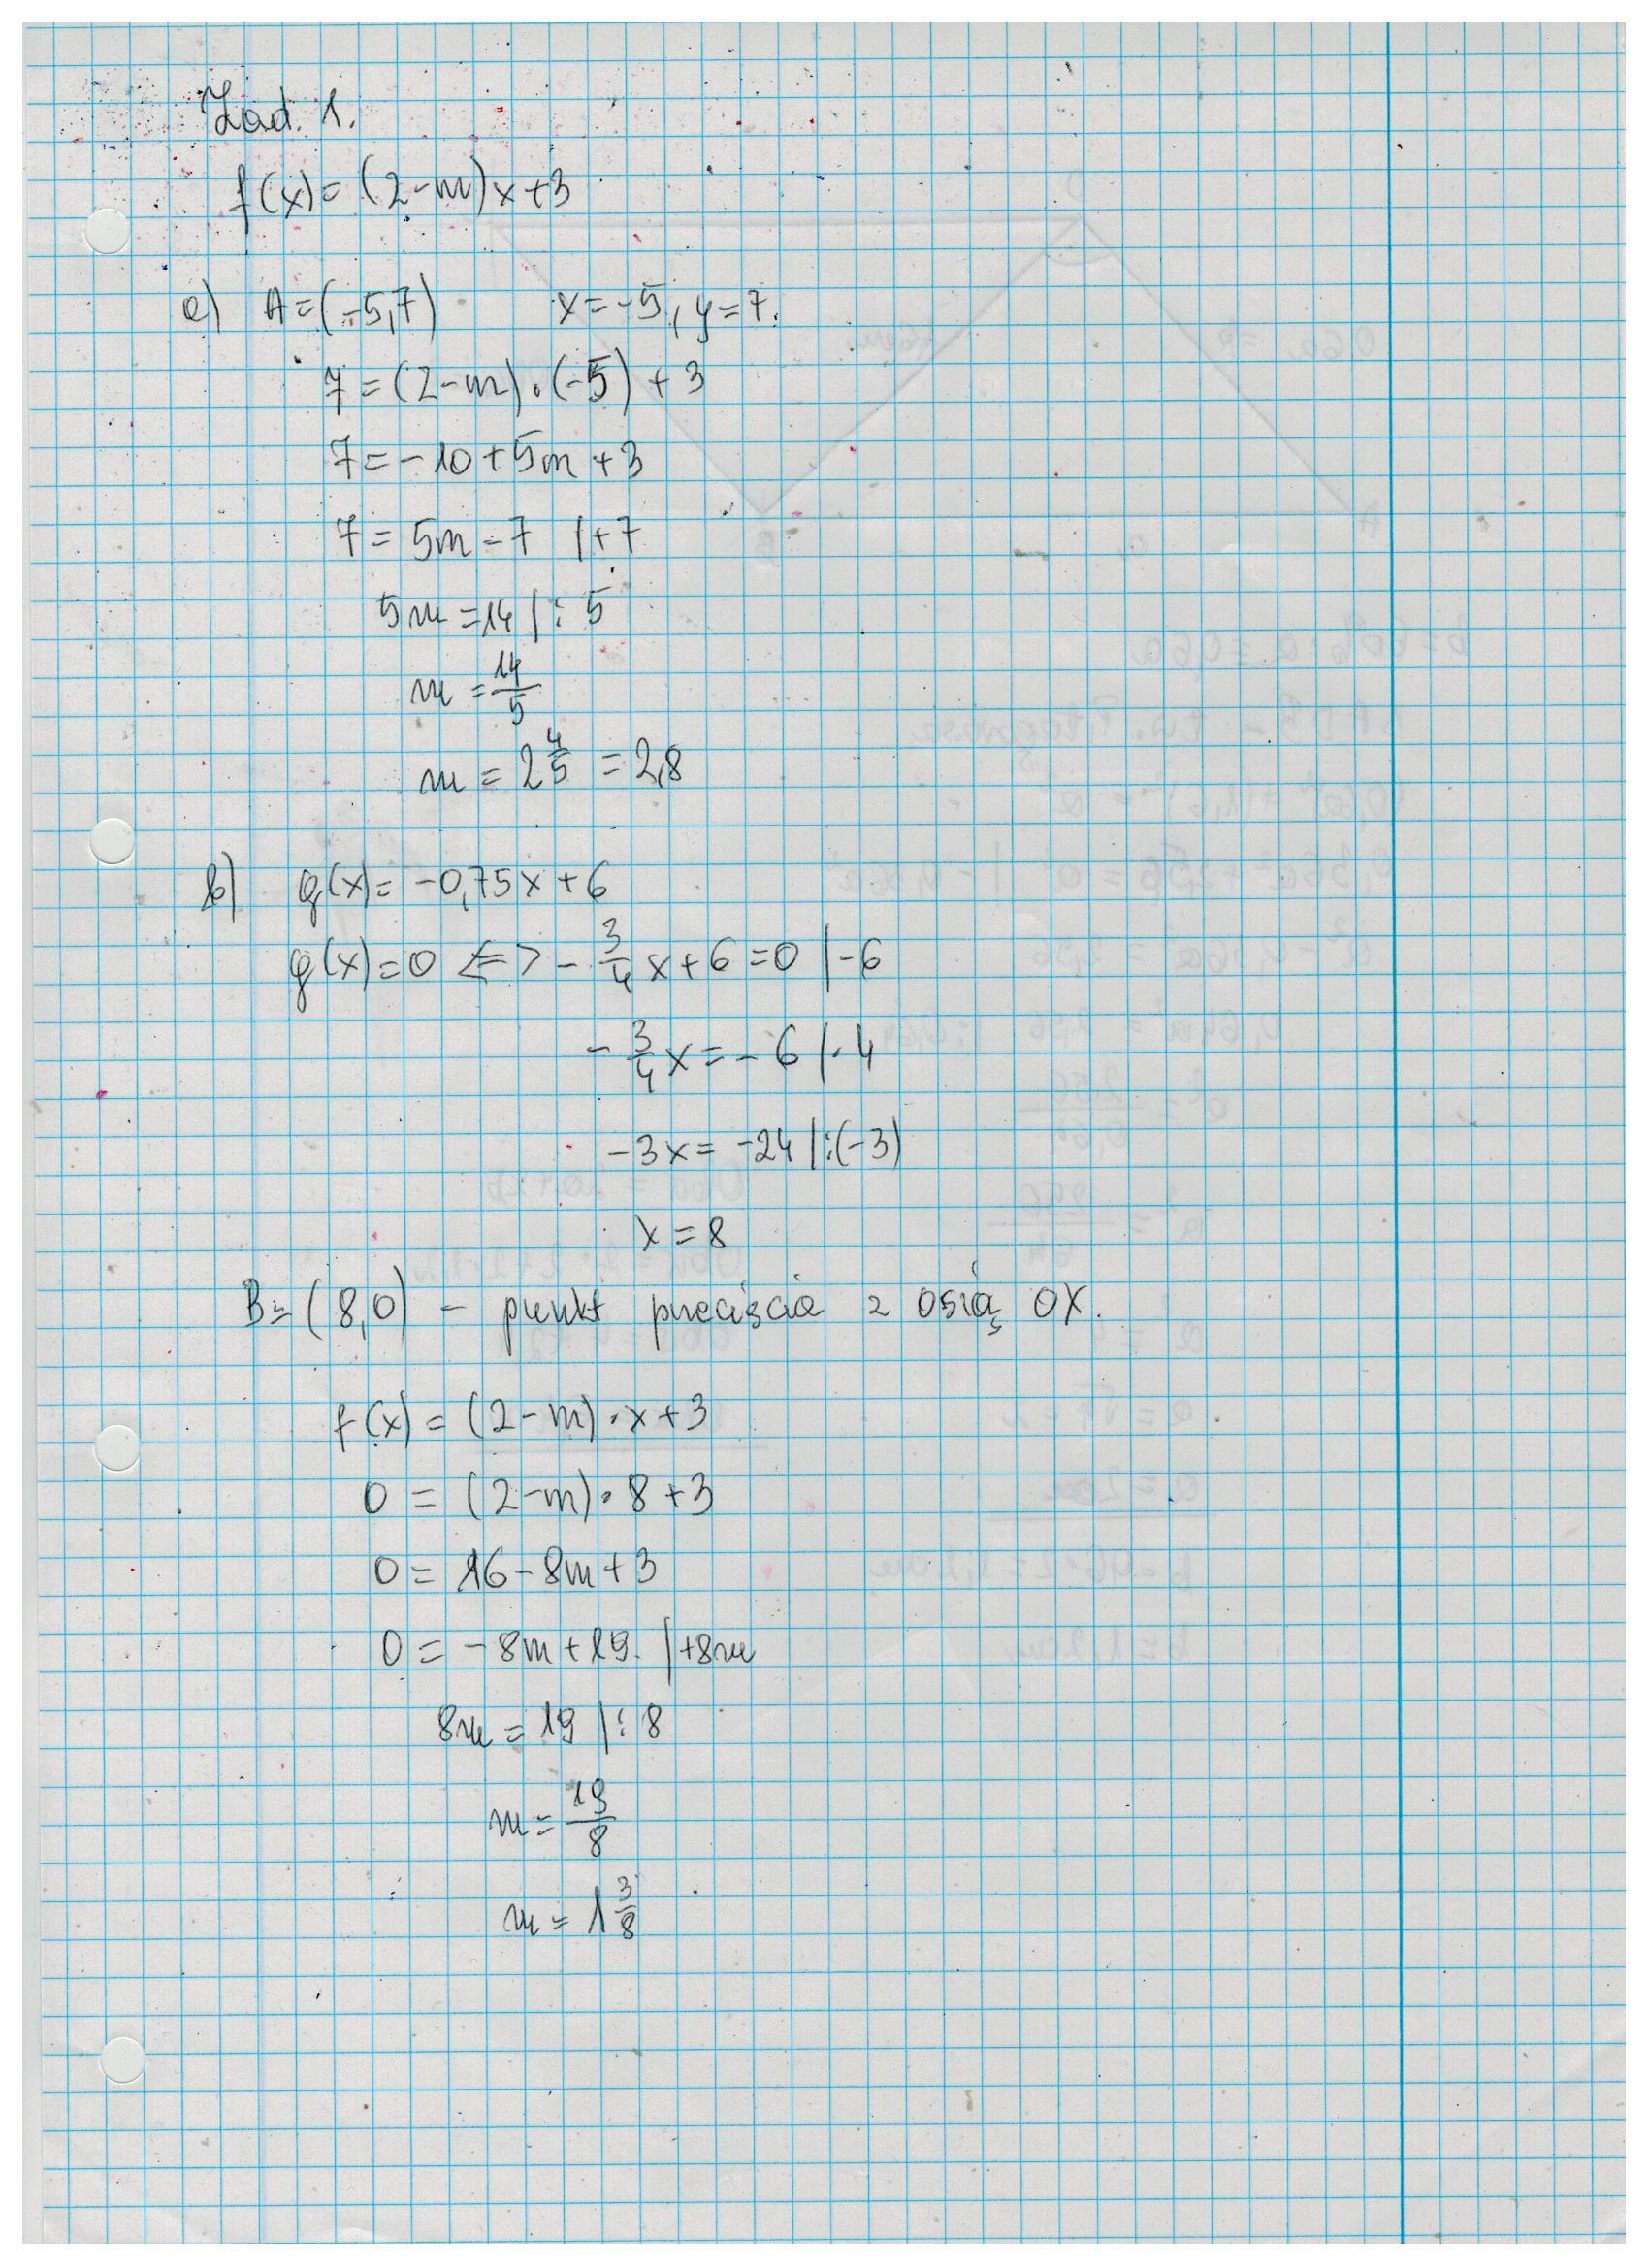 Zad. 1.
f(x) = (2-m)x+3
a) A=(-5,7) x=-5, y=7.
7=(2-m)·(-5)+3
7=-10+5m+3
7=5m-7 |+7
5m=14 |:5
m=14/5
m=2 4/5 =2,8
b) g(x)=-0,75x+6
g(x)=0 <=> -3/4x+6=0 |-6
-3/4x=-6 |·4
-3x=-24 |:(-3)
x=8
B=(8,0) - punkt przecięcia z osią OX.
f(x)=(2-m)·x+3
0=(2-m)·8+3
0=16-8m+3
0=-8m+19. |+8m
8m=19 |:8
m=19/8
m=1 3/8